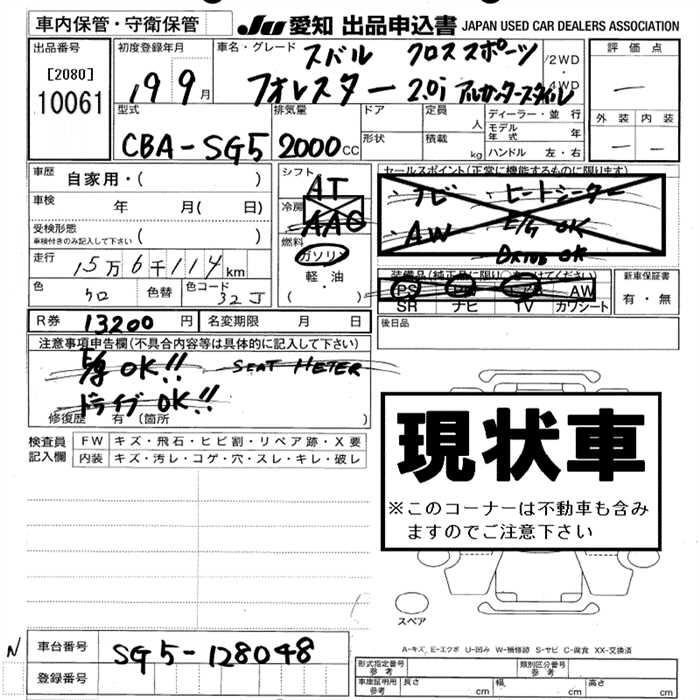 車内保管・守衛保管 JU 愛知 出品申込書 JAPAN USED CAR DEALERS ASSOCIATION
出品番号 [2080] 10061
初度登録年月 19 9月
車名・グレード スバル クロススポーツ /2WD
フォレスター 2.0i アルカンターラスタイル 4WD
評価点 —
外装 — 内装 —
型式 CBA-SG5
排気量 2000cc
ドア 形状
定員 人
積載 kg
ディーラー・並行
モデル年式 年
ハンドル 左・右
車歴 自家用・( )
車検 年 月( 日)
受検形態 車検付きのみ記入して下さい ( )
走行 15万6千114km
色 クロ 色替 色コード 32J
シフト AT
冷房 AAC
燃料 ガソリン
軽・油
( )
セールスポイント(正常に機能するものに限ります)
ナビ ヒートシーター
AW E/G OK
DRIVE OK
装備品(純正品に限り○をつけてください)
PS AW
SR ナビ TV カワシート
新車保証書 有・無
後日品
R券 13200円 名変期限 月 日
注意事項申告欄(不具合内容等は具体的に記入して下さい)
E/g OK!! SEAT METER
ドライブOK!!
修復歴 有(箇所 )
検査員記入欄 FW キズ・飛石・ヒビ割・リペア跡・X要
内装 キズ・汚レ・コゲ・穴・スレ・キレ・破レ
現状車
※このコーナーは不動車も含み
ますのでご注意下さい
スペア
N 車台番号 SG5-128048
登録番号
A-キズ E-エクボ U-凹み W-補修跡 S-サビ C-腐食 XX-交換済
形式指定番号 参考 類別区分番号 参考
車庫証明用 参考 長さ cm 幅 cm 高さ cm